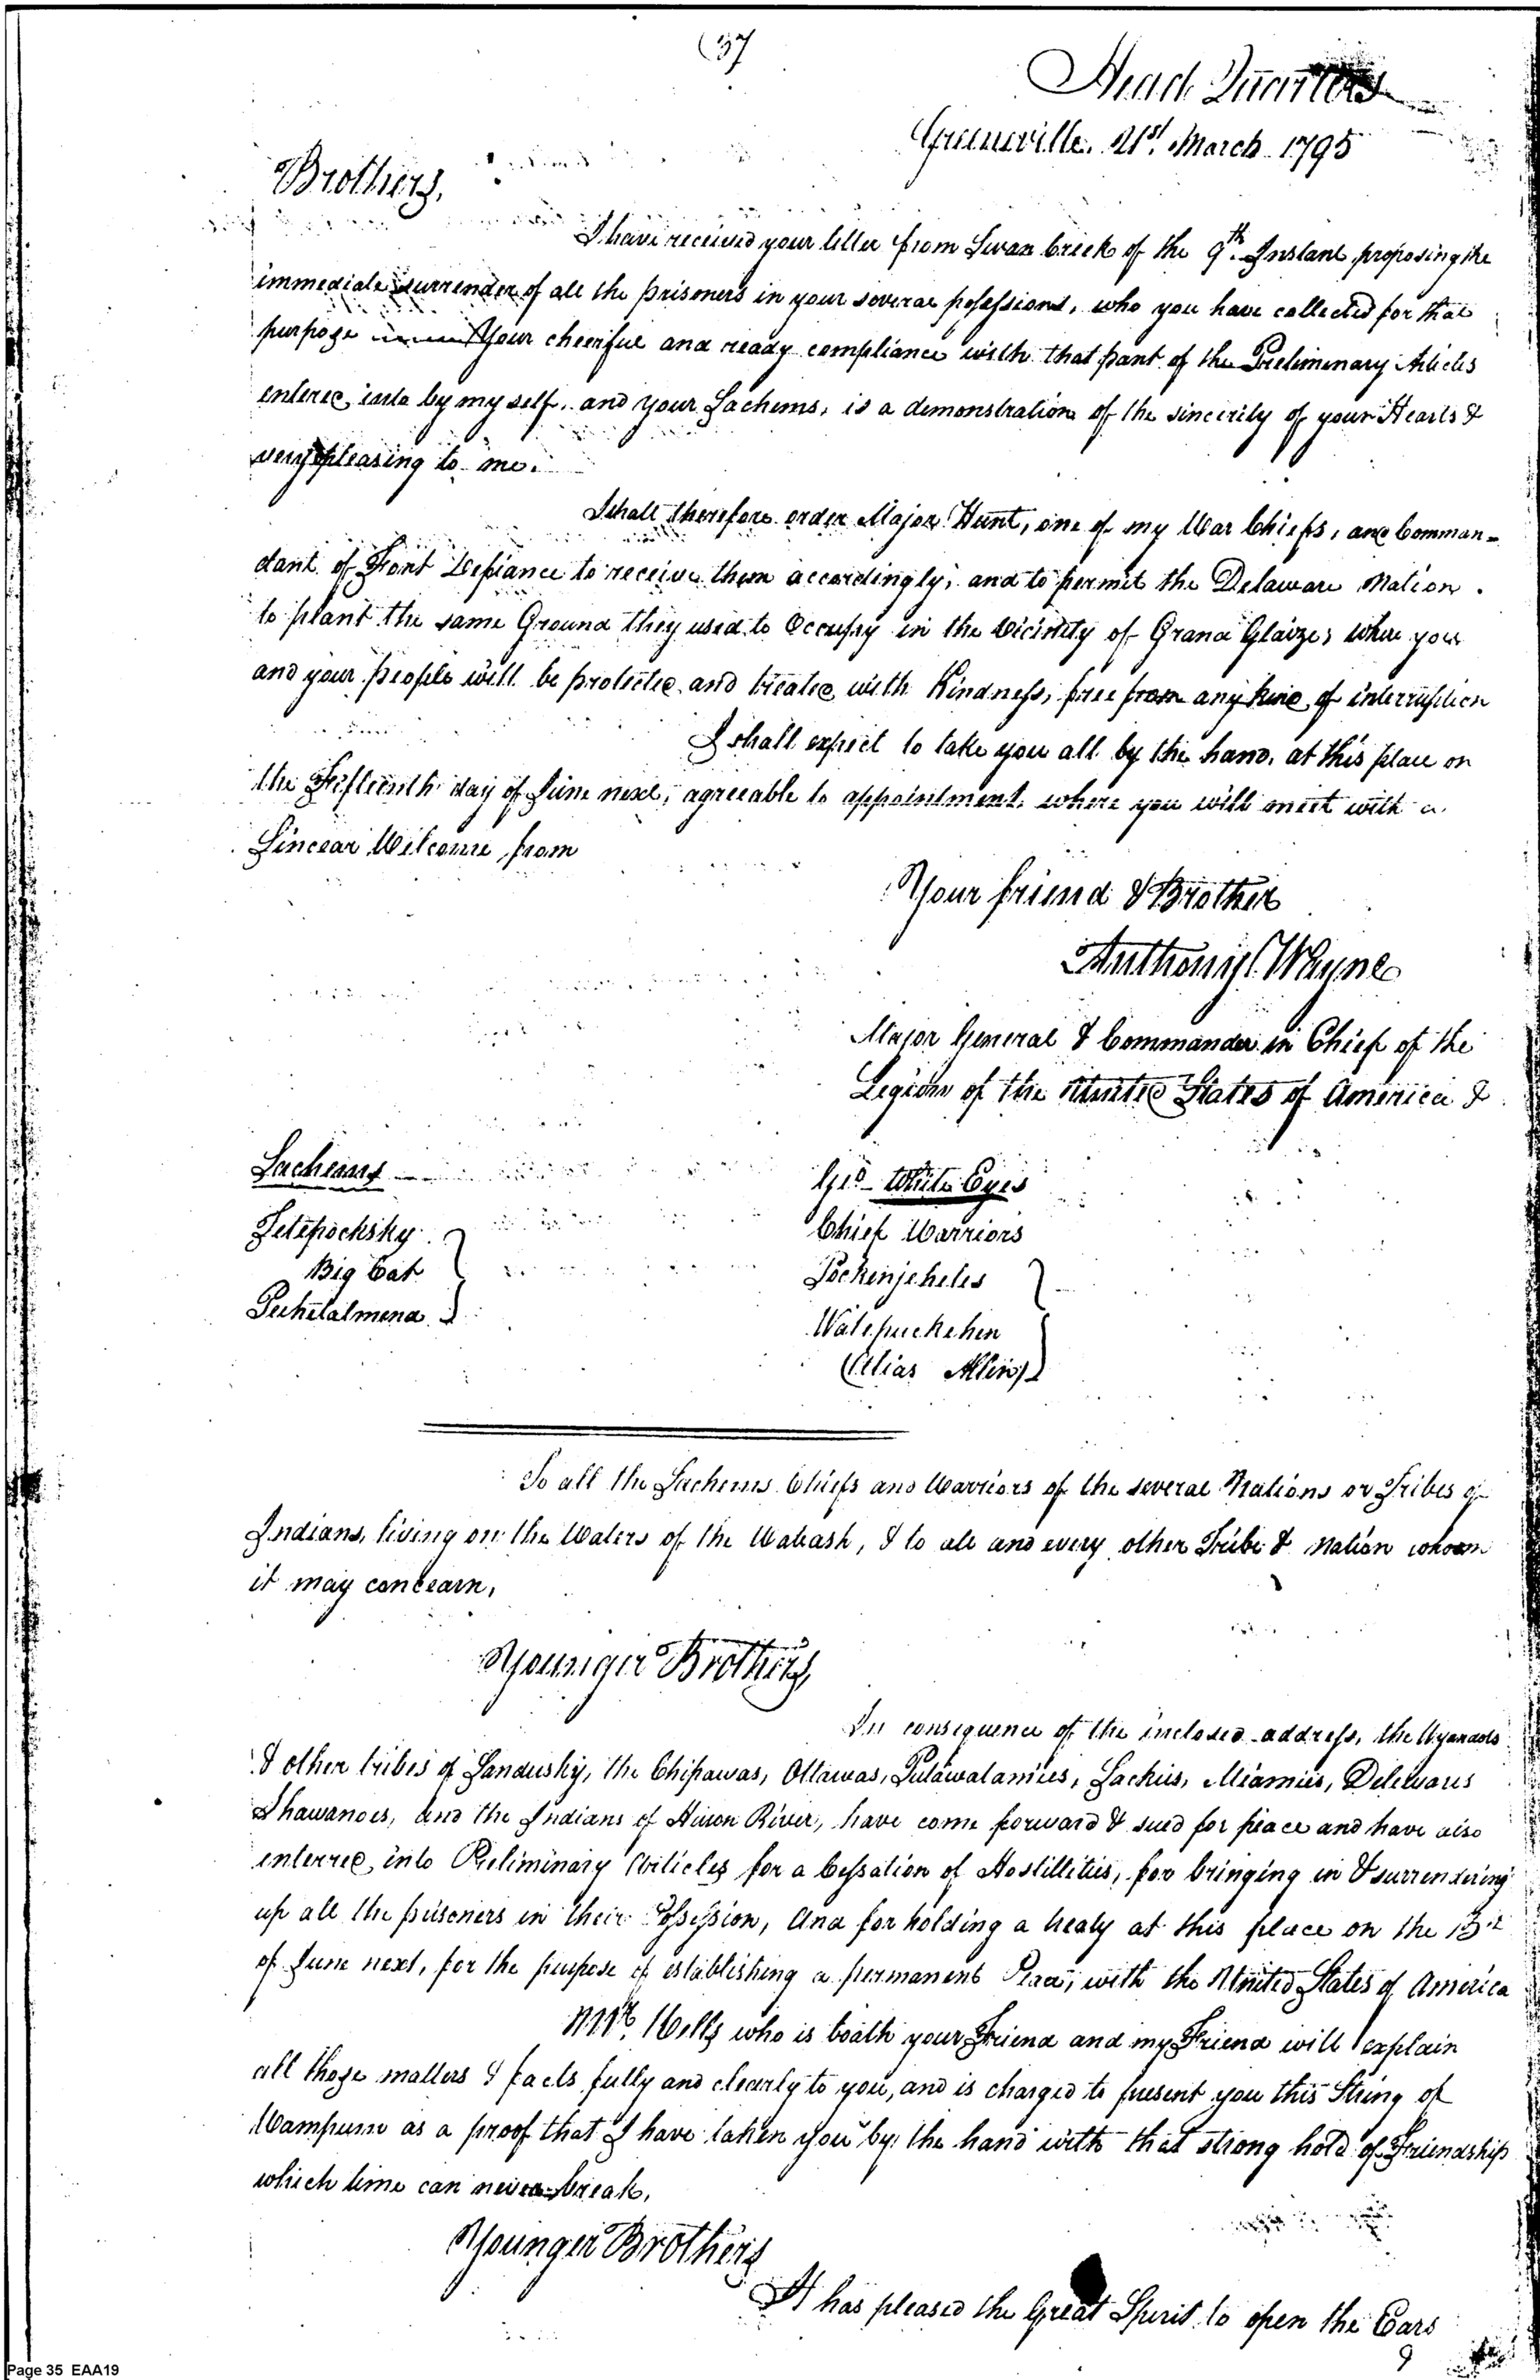 (37
Head Quarters
Greeneville. 21st. March 1795
Brothers,
I have received your letter from Swan Creek of the 9th. Instant proposing the
immediate surrender of all the prisoners in your several possessions, who you have collected for that
purpose Your cheerful and ready compliance with that part of the Preliminary Articles
entered into by my self. and your Sachems, is a demonstration of the sincerity of your Hearts &
very pleasing to me.
I shall therefore order Major Hunt, one of my War Chiefs, and Comman-
dant of Font Defiance to receive them accordingly, and to permit the Delaware Nation
to plant the same Ground they used to Occupy in the Vicinity of Grand Glaize, where you
and your people will be protected and treated with Kindness, free from any kind of interruption
I shall expect to take you all by the hand, at this place on
the Fifteenth day of June next, agreeable to appointment. where you will meet with a
Sincear Welcome from
Your friend & Brother
Anthony Wayne
Major General & Commander in Chief of the
Legion of the United States of America &
Sachems
Geo. White Eyes
Tetepochsky
Chief Warriors
Big Cat
Pockenjeheles
Pechetalmena
Walepuckehen
(Alias Allin)
To all the Sachems Chiefs and Warriors of the several Nations or Tribes of
Indians, living on the Waters of the Wabash, & to all and every other Tribe & Nation whom
it may concearn,
Younger Brothers,
In consequence of the inclosed address, the Wyandots
& other tribes of Sandusky, the Chipawas, Ottawas, Putawatamies, Sackies, Miamies, Delewars
Shawanoes, and the Indians of Huron River, have come forward & sued for peace and have also
enterred, into Preliminary Articles for a Cessation of Hostillities, for bringing in & surrendering
up all the prisoners in their Possession, And for holding a treaty at this place on the 15th
of June next, for the purpose of establishing a permanent Peace, with the United States of America
Mr. Wells who is boath your Friend and my Friend will explain
all those matters & facts fully and clearly to you, and is charged to present you this String of
Wampum as a proof that I have taken you by the hand with that strong hold of Friendship
which time can never break.
Younger Brothers
It has pleased the Great Spirit to open the Ears
9
Page 35 EAA19